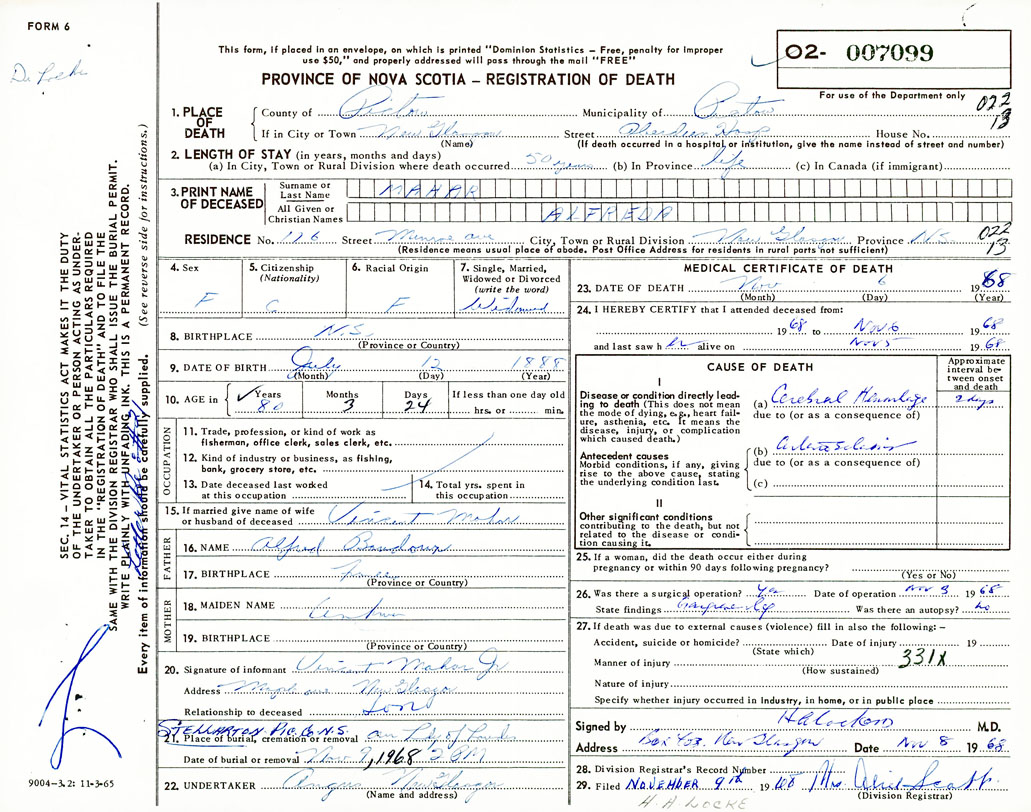 FORM 6
This form, if placed in an envelope, on which is printed "Dominion Statistics – Free, penalty for improper
use $50," and properly addressed will pass through the mail "FREE"
PROVINCE OF NOVA SCOTIA – REGISTRATION OF DEATH
O2- 007099
For use of the Department only
022
13
1. PLACE OF DEATH
County of Pictou Municipality of Pictou
If in City or Town New Glasgow Street Aberdeen Hosp House No.
(Name) (If death occurred in a hospital or institution, give the name instead of street and number)
2. LENGTH OF STAY (in years, months and days)
(a) In City, Town or Rural Division where death occurred 50 years (b) In Province life (c) In Canada (if immigrant)
3. PRINT NAME OF DECEASED
Surname or Last Name MAHAR
All Given or Christian Names ALFREDA
RESIDENCE No. 116 Street City, Town or Rural Division New Glasgow Province N.S.
022
13
(Residence means usual place of abode. Post Office Address for residents in rural parts not sufficient)
4. Sex
F
5. Citizenship
(Nationality)
C
6. Racial Origin
F
7. Single, Married,
Widowed or Divorced
(write the word)
Widowed
8. BIRTHPLACE N.S.
(Province or Country)
9. DATE OF BIRTH July 12 1888
(Month) (Day) (Year)
10. AGE in
Years Months Days If less than one day old
80 3 24 hrs. or min.
OCCUPATION
11. Trade, profession, or kind of work as
fisherman, office clerk, sales clerk, etc.
12. Kind of industry or business, as fishing,
bank, grocery store, etc.
13. Date deceased last worked
at this occupation
14. Total yrs. spent in
this occupation
15. If married give name of wife
or husband of deceased Vincent Mahar
FATHER
16. NAME Alfred
17. BIRTHPLACE
(Province or Country)
MOTHER
18. MAIDEN NAME
19. BIRTHPLACE
(Province or Country)
20. Signature of informant Vincent Mahar Jr
Address New Glasgow
Relationship to deceased Son
STELLARTON PIC. CO. N.S.
21. Place of burial, cremation or removal
Date of burial or removal Nov 9, 1968
22. UNDERTAKER New Glasgow
(Name and address)
MEDICAL CERTIFICATE OF DEATH
23. DATE OF DEATH Nov 6 1968
(Month) (Day) (Year)
24. I HEREBY CERTIFY that I attended deceased from:
1968 to Nov 6 1968
and last saw h er alive on Nov 5 1968
CAUSE OF DEATH
Approximate
interval be-
tween onset
and death
I
Disease or condition directly lead-
ing to death (This does not mean
the mode of dying, e.g., heart fail-
ure, asthenia, etc. It means the
disease, injury, or complication
which caused death.)
(a) Cerebral Hemorrhage 2 days
due to (or as a consequence of)
Antecedent causes
Morbid conditions, if any, giving
rise to the above cause, stating
the underlying condition last.
(b)
due to (or as a consequence of)
(c)
II
Other significant conditions
contributing to the death, but not
related to the disease or condi-
tion causing it.
25. If a woman, did the death occur either during
pregnancy or within 90 days following pregnancy?
(Yes or No)
26. Was there a surgical operation? Yes Date of operation Nov 3 1968
State findings Was there an autopsy? No
27. If death was due to external causes (violence) fill in also the following: –
Accident, suicide or homicide? Date of injury 19
(State which)
Manner of injury 331X
(How sustained)
Nature of injury
Specify whether injury occurred in Industry, in home, or in public place
Signed by M.D.
Address Box 403, New Glasgow Date Nov 8 1968
28. Division Registrar's Record Number
29. Filed NOVEMBER 9th 1968 Mrs
(Division Registrar)
H.A. LOCKE
SEC. 14 – VITAL STATISTICS ACT MAKES IT THE DUTY
OF THE UNDERTAKER OR PERSON ACTING AS UNDER-
TAKER TO OBTAIN ALL THE PARTICULARS REQUIRED
IN THE "REGISTRATION OF DEATH" AND TO FILE THE
SAME WITH THE DIVISION REGISTRAR WHO SHALL ISSUE THE BURIAL PERMIT.
WRITE PLAINLY WITH UNFADING INK. THIS IS A PERMANENT RECORD.
Every item of information should be carefully supplied. (See reverse side for instructions.)
9004–3.2: 11-3-65